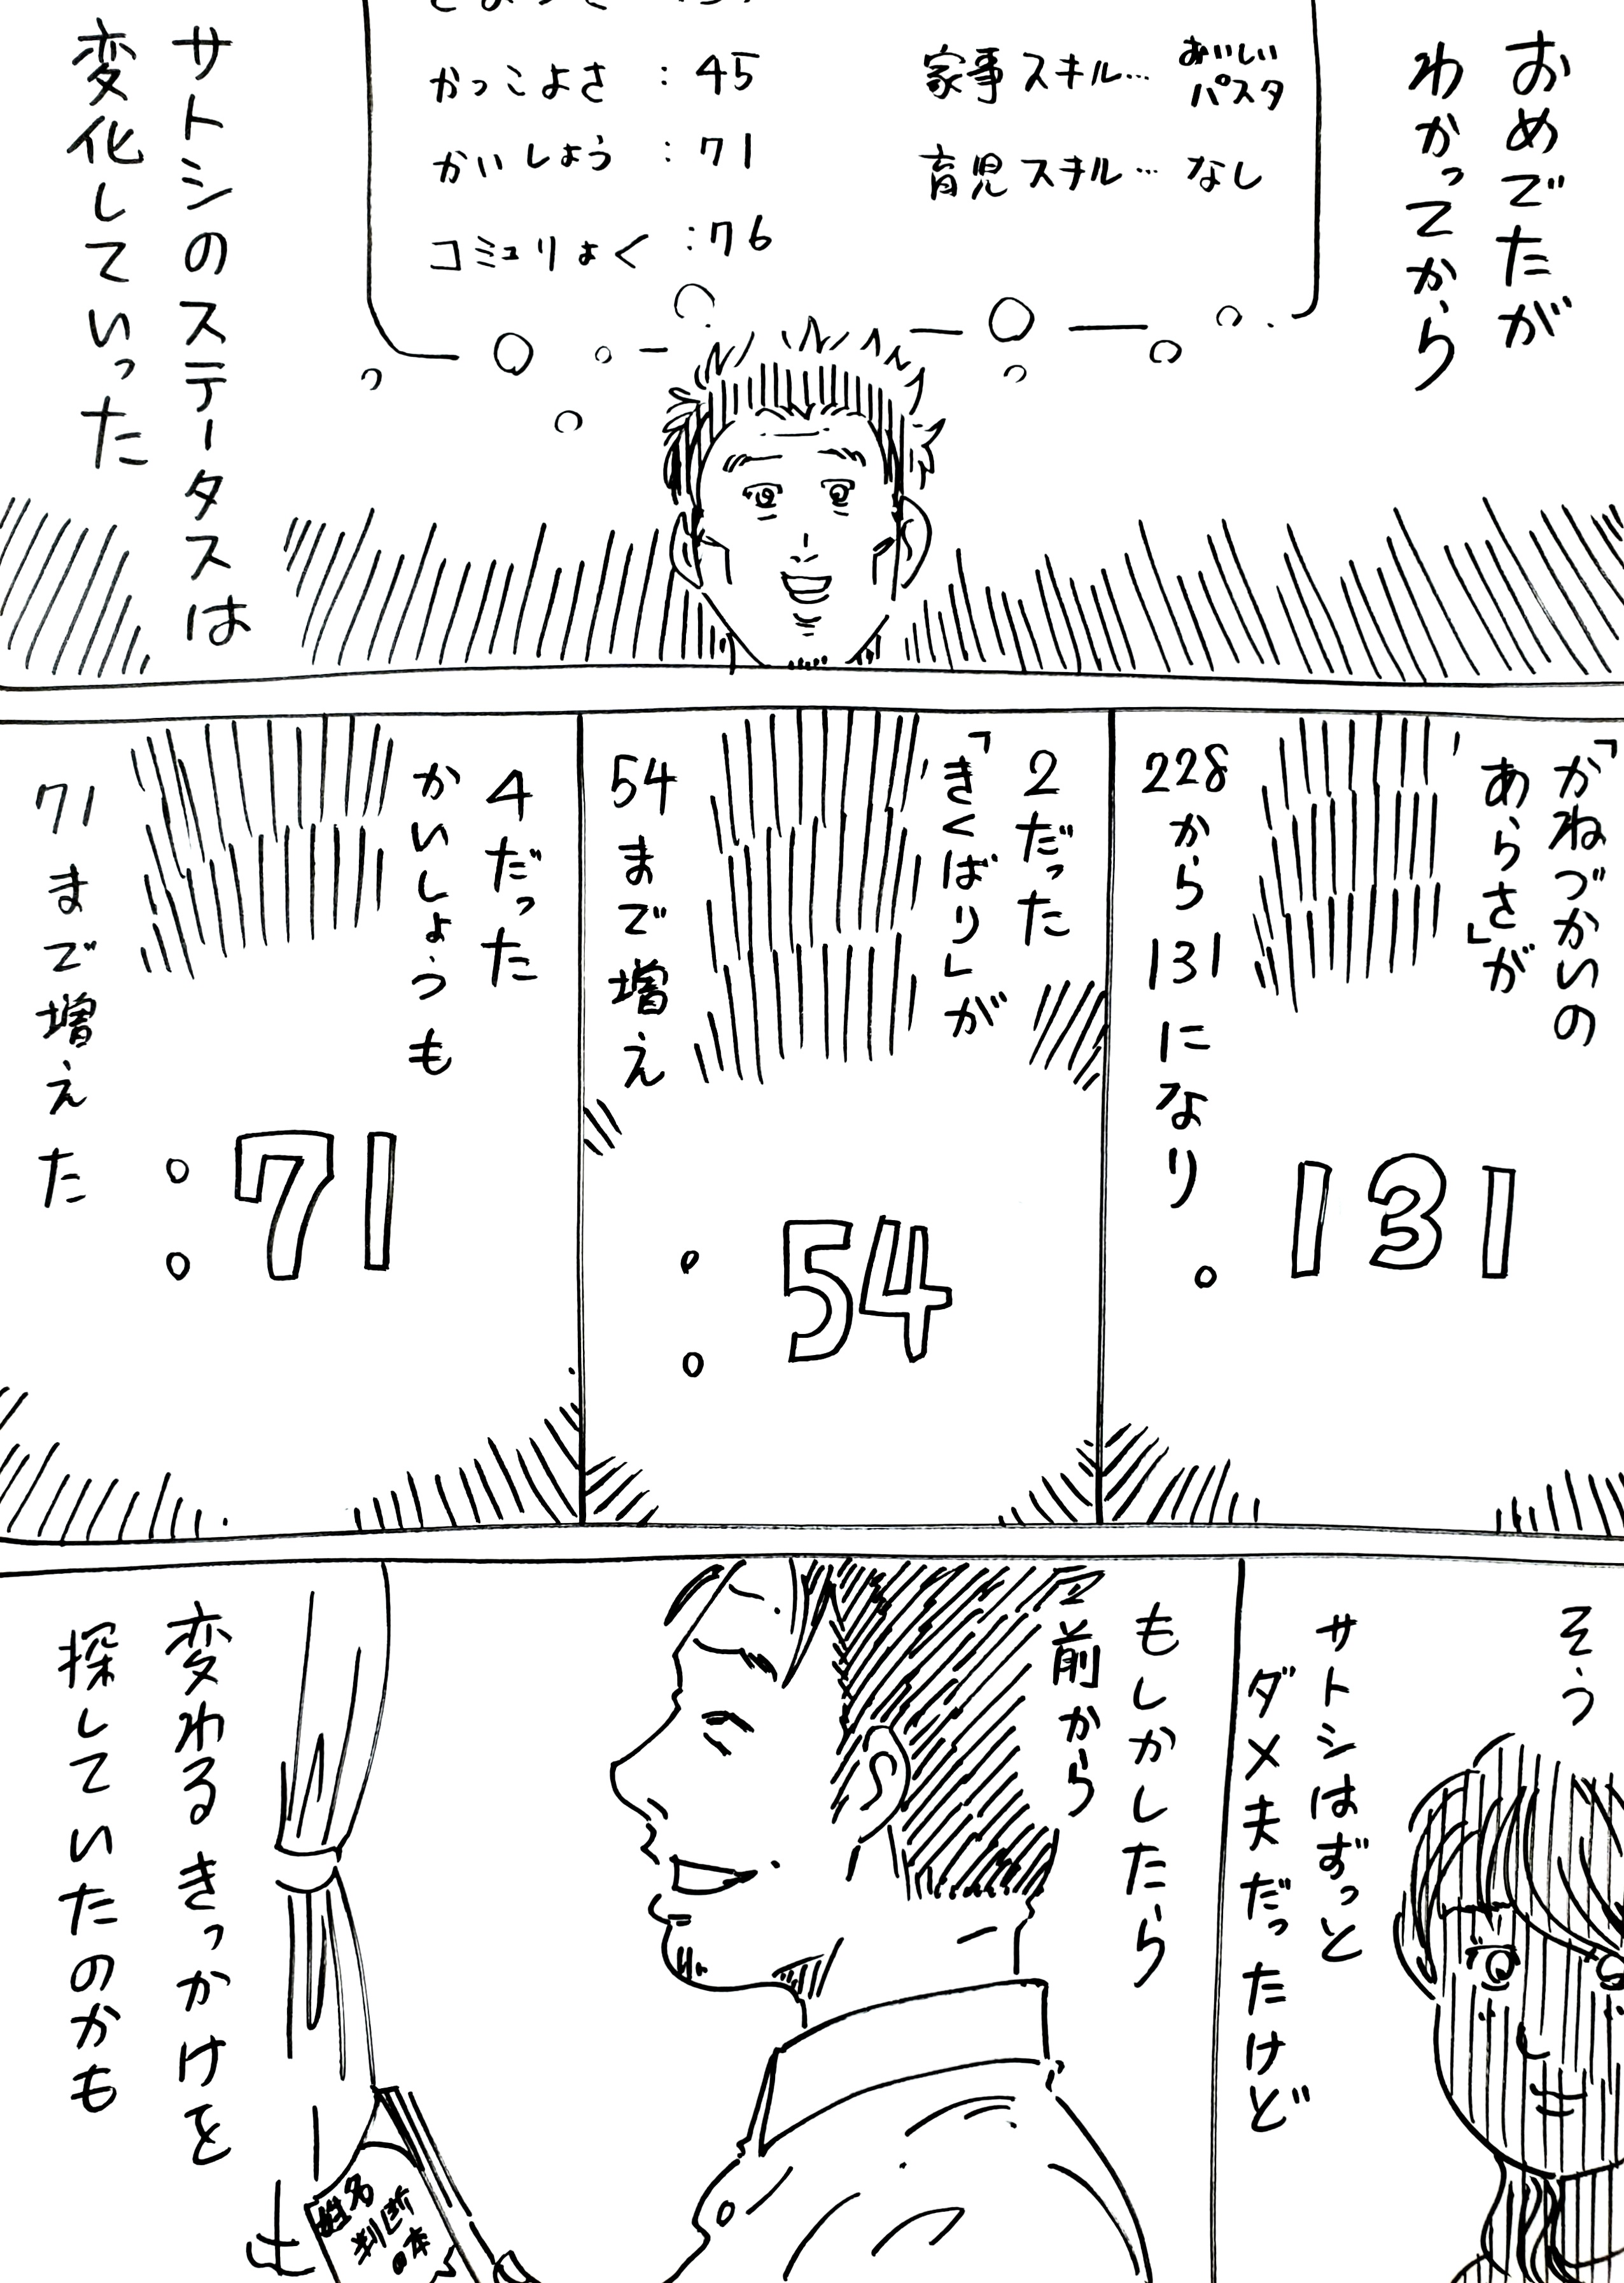 おめでたが
わかってから
かっこよさ：45
かいしょう：71
コミュりょく：76
家事スキル…おいしい
パスタ
育児スキル…なし
サトシのステータスは
変化していった
「かねづかいの
あらさ」が
228から131になり
131
2だった
「きくばり」が
54まで増え
：54
4だった
かいしょうも
71まで増えた
：71
そう
サトシはずっと
ダメ夫だったけど
もしかしたら
前から
変わるきっかけを
探していたのかも
姓名
判断
の本